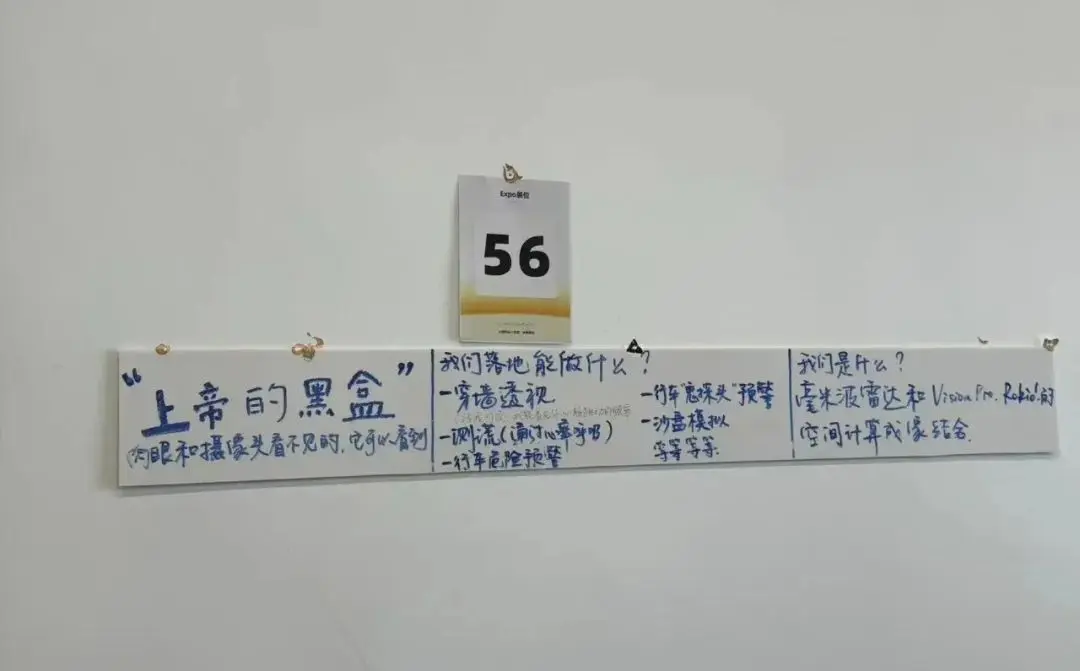 Expo展位
56
“上帝的黑盒”
肉眼和摄像头看不见的，它可以看到
我们落地能做什么？
-穿墙透视
-测谎（通过心率呼吸）
-行车危险预警
-行车“鬼探头”预警
-沙盘模拟
等等等等
我们是什么？
毫米波雷达和Vision Pro. Rokid的
空间计算成像结合